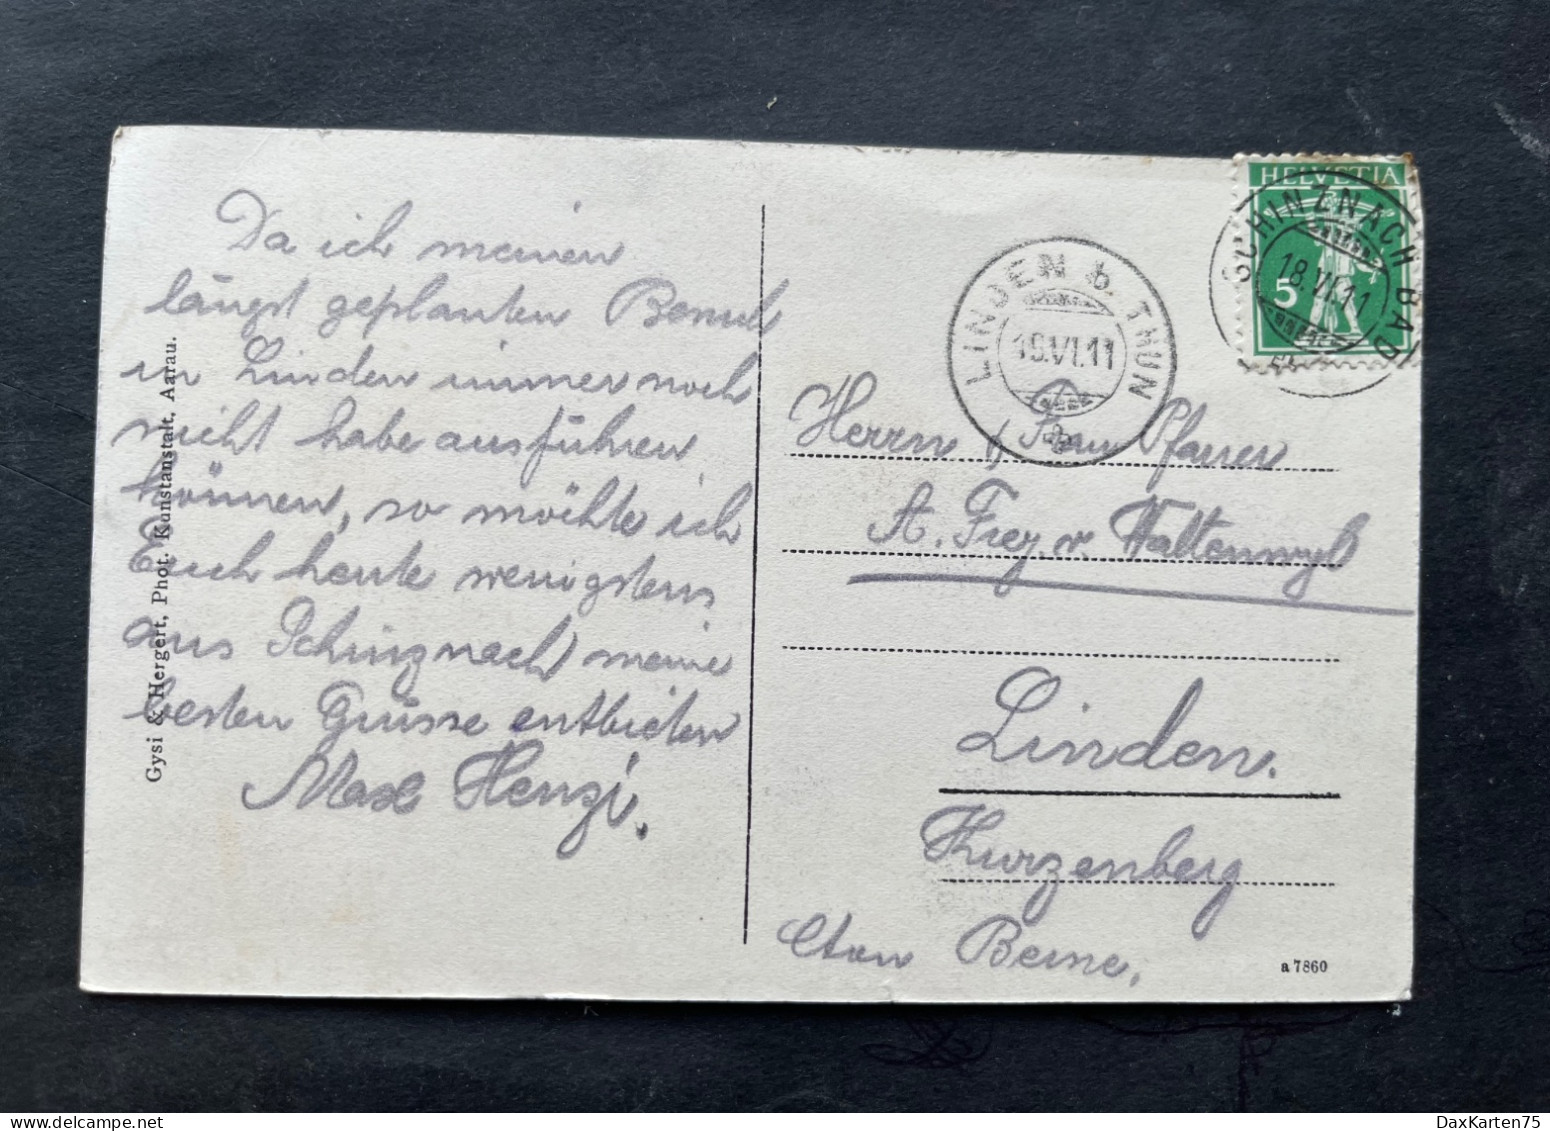 Da ich meinen
längst geplanten Besuch
in Linden immer noch
nicht habe ausführen
können, so möchte ich
Euch heute wenigstens
aus Schinznach meine
besten Grüsse entbieten
Max Henzi.
Gysi & Hergert, Phot. Kunstanstalt, Aarau.
HELVETIA
5
SCHINZNACH BAD
18.VI.11
LINDEN b. THUN
19.VI.11
Herrn & Frau Pfarrer
A. Frey v. Wattenwyl
Linden.
Kurzenberg
Cton Berne,
a 7860
DaxKarten75